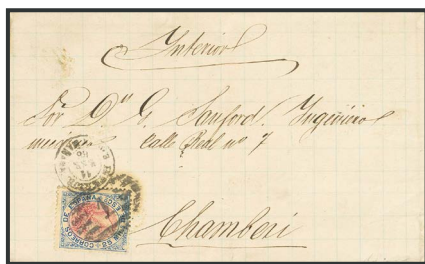 Interior
Sor Dn G. Sanford, Ingeniero
Calle Real nº 7
Chamberi
CORREOS DE ESPAÑA